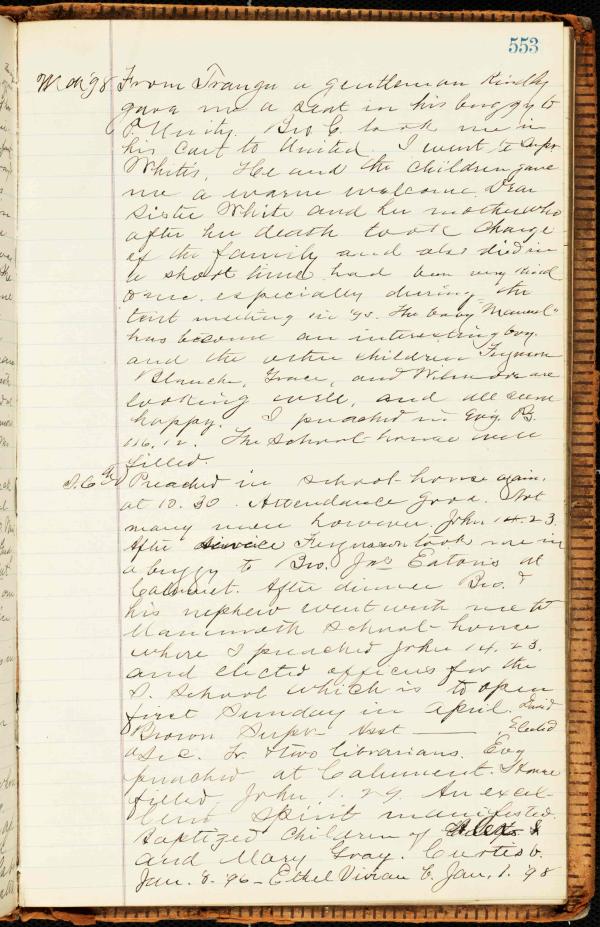 553
Mch '98 From Trangu a gentleman kindly
gave me a seat in his buggy to
P. Unity. Bro C. took me in
his cart to United. I went to Supr
White's, He and the children gave
me a warm welcome Dear
Sister White and her mother who
after her death took charge
of the family and also died in
a short time had been very kind
to me. especially during the
tent meeting in '95. The baby "Manuel"
has become an interesting boy.
and the other children Ferguson
Blanche, Grace, and Wilmore are
looking well, and all seem
happy. I preached in Evg. Ps.
116.12. The school-house well
filled.
S. 6th Preached in school-house again.
at 10.30. Attendance good. Not
many men however. John 14.23.
After service Ferguson took me in
a buggy to Bro. Jas Eaton's at
Calumet. After dinner Bro. &
his nephew went with me to
Mammoth School-house
where I preached John 14.23.
and elected officers for the
S. School which is to open
first Sunday in April. David
Brown Supr- Asst — Elected
a Sec. Tr. & two librarians. Evg
preached at Calumet. House
filled John 1.29. An excel-
lent spirit manifested.
Baptized children of Alex S
and Mary Gray. Curtis b.
Jan. 8. 96 - Ethel Vivian b. Jan. 1. 98